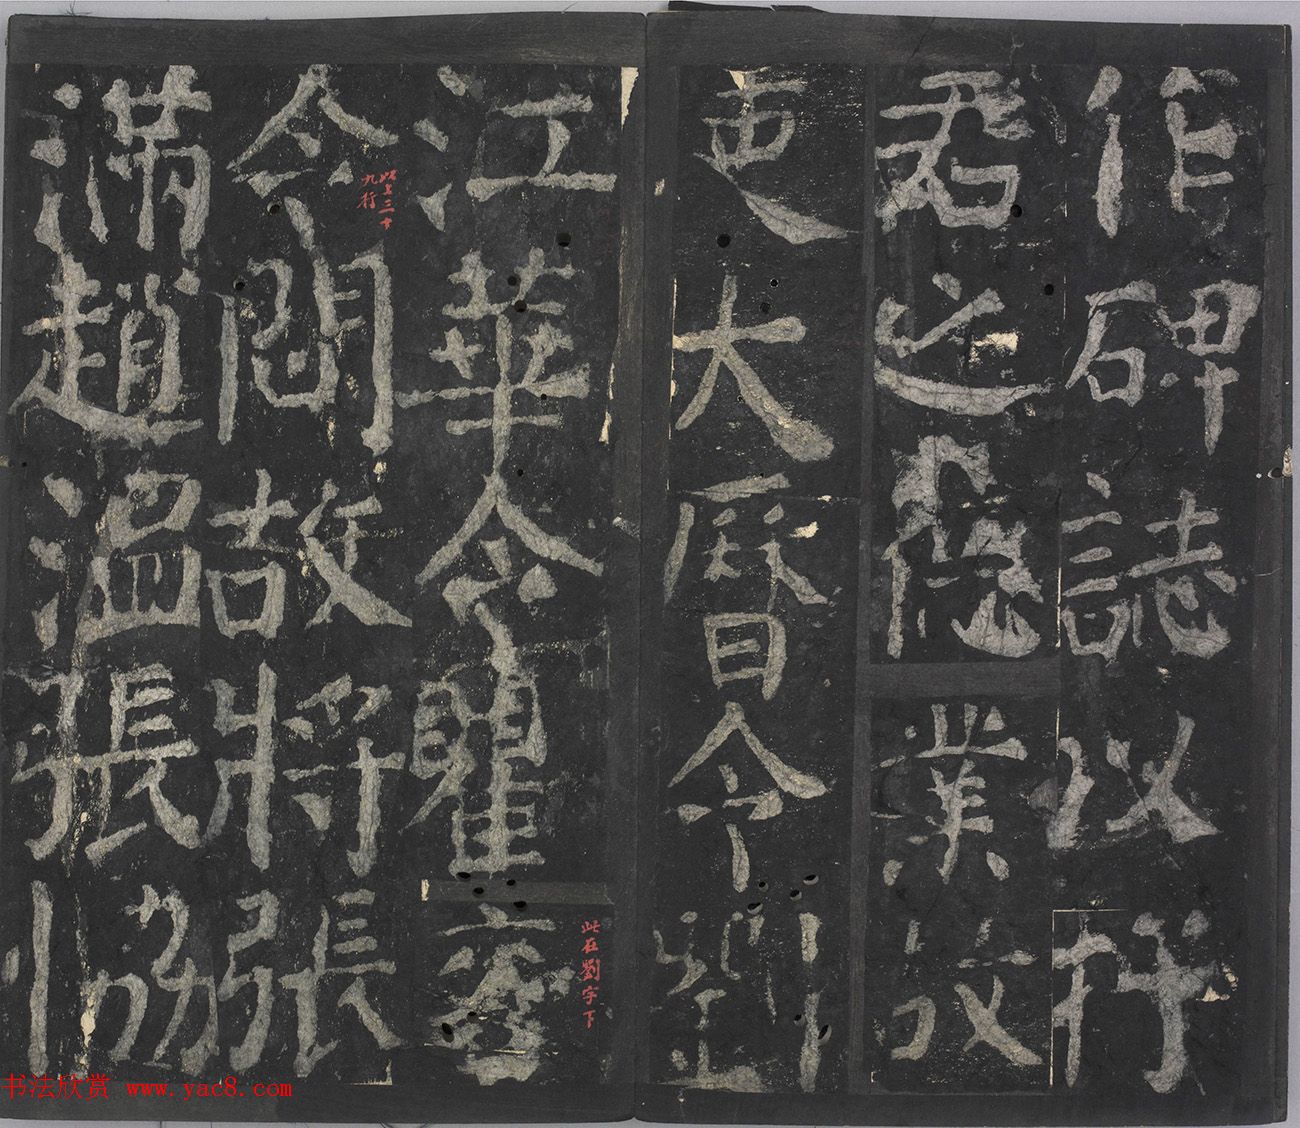 作碑誌以抒
君之業故
吏大曆令劉
江華令瞿袞
此在劉字下
令問故將張
此上三十
九行
滿趙溫張協
书法欣赏 www.yac8.com